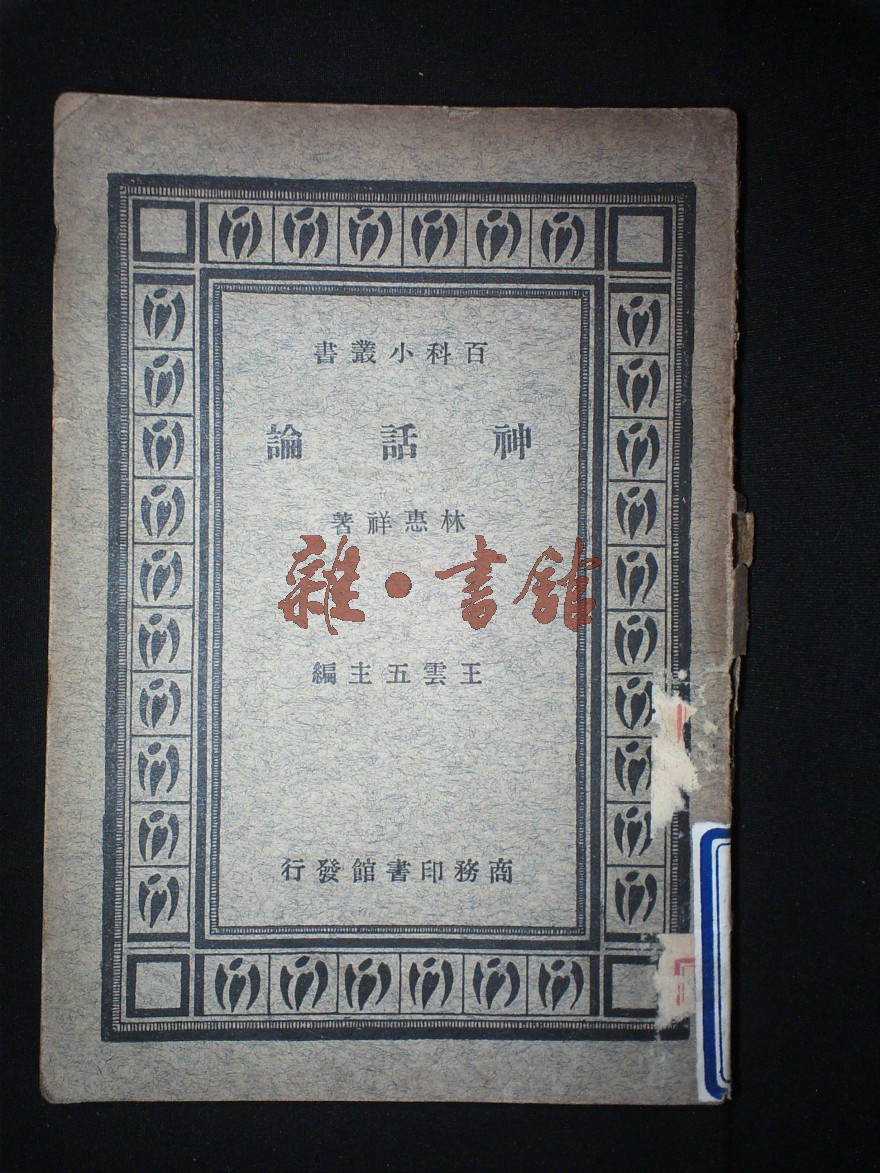 百科小叢書
神話論
林惠祥著
雜·書館
王雲五主編
商務印書館發行